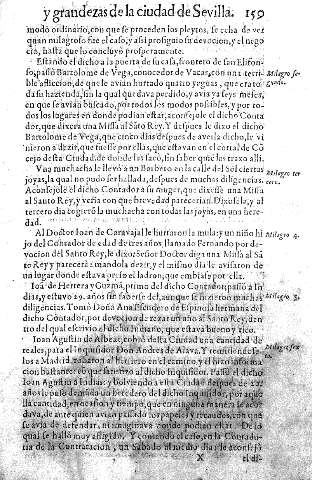 y grandezas de la ciudad de Sevilla. 159
modo ordinario, con que se proceden los pleytos, se echa de ver
quan milagroso fue el caso, y assi prosiguio su devocion, y el nego
cio, hasta que lo concluyò prosperamente.
Estando el dicho a la puerta de su casa, frontero de san Ilifon-
so, passò Bartolome de Vega, conocedor de Vacas, con una terri-
ble afliccion, de que le avian hurtado quatro yeguas, que era to
da su hazienda, sin la qual quedava perdido, y avia ya seys meses,
en que se avian buscado, por todos los modos possibles, y por to-
dos los lugares en donde podian estar, aconsejole el dicho Conta
dor, que dixera una Missa al Sãto Rey. Y despues le dixo el dicho
Bartolome de Vega, que cinco dias despues de averla dicho, le vi
nieron a dezir, que fuesse por ellas, que estavan en el corral de Cõ
cejo desta Ciudad de donde las sacò, sin saber quiē las traxo alli.
Milagro se
gundo.
Una muchacha le llevò a un Barbero en la calle del Sol ciertas
joyas, la qual no pudo ser hallada, despues de muchas diligencias.
Aconsejole el dicho Contador a su muger, que dixesse una Missa
al Santo Rey, y veria con que brevedad parecerian. Dixosela, y al
tercero dia cogierõ la muchacha con todas las joyas, en una here-
dad.
Milagro ter
cero.
Al Doctor Ioan de Caravajal le hurtaron la mula; y un niño hi
jo del Contador de edad de tres años, llamado Fernando por de-
vocion del Santo Rey, le dixo: Señor Doctor diga una Missa al Sã
to Rey y parecerà mandola dezir, y el mismo dia le avisaron de
un lugar donde estava preso el ladron, que embiasse por ella.
Milagro 4.
Ioã de Herrera y Guzmã, primo del dicho Contador, passò a In
dias, y estuvo 19. años sin saberse del, aunque se hizieron muchas
diligencias. Tomò Doña Ana Ponce de Espinosa hermana del
dicho Contador, por devocion de rezar un año al Santo Rey, den-
tro del qual escrivio el dicho Indiano, que estava bueno y rico.
Milagro 5.
Ioan Agustin de Albear, cobrò desta Ciudad una cantidad de
reales, para el Inquisidor Don Andres de Alava, Y remitiendose-
los a Madrid, robaron al harriero en el camino, y el hizo informa
cion bastante: de que satisfizo al dicho Inquisidor. Passò el dicho
Ioan Agustin a Indias: y bolviendo a esta Ciudad despues de
años le pide demanda un heredero del dicho Inquisidor, por aque
lla cantidad, en ocasion, y tiempo, que con ninguna manera se acor
dava, de ante quien avian passado los papeles y recaudos, con que
se avia de defender, ni imaginava donde podian estar. De lo
qual se hallò muy afligido. Y contando el caso, en la Contadu-
ria de la Contratacion, un Sabado al medio dia le aconsejò
Milagro sex
to.
X el di-